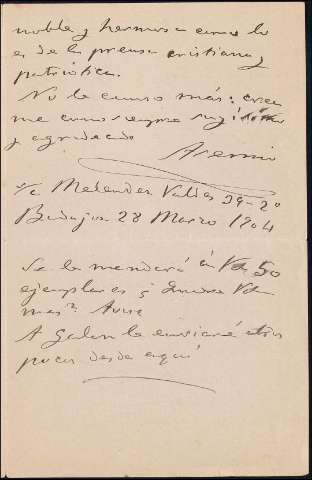 noble y hermosa como lo
es de la prensa cristiana y
patriótica.
No le canso más: crea
me como siempre suy
y agradecido
Arsenio
s/c Melendez Valdes 29-2º
Badajoz 28 Marzo 1904
Se le mandará á Vd 50
ejemplares ¿Quiere Vd
mas? Avise
A Galan le enviaré otros
pocos desde aquí